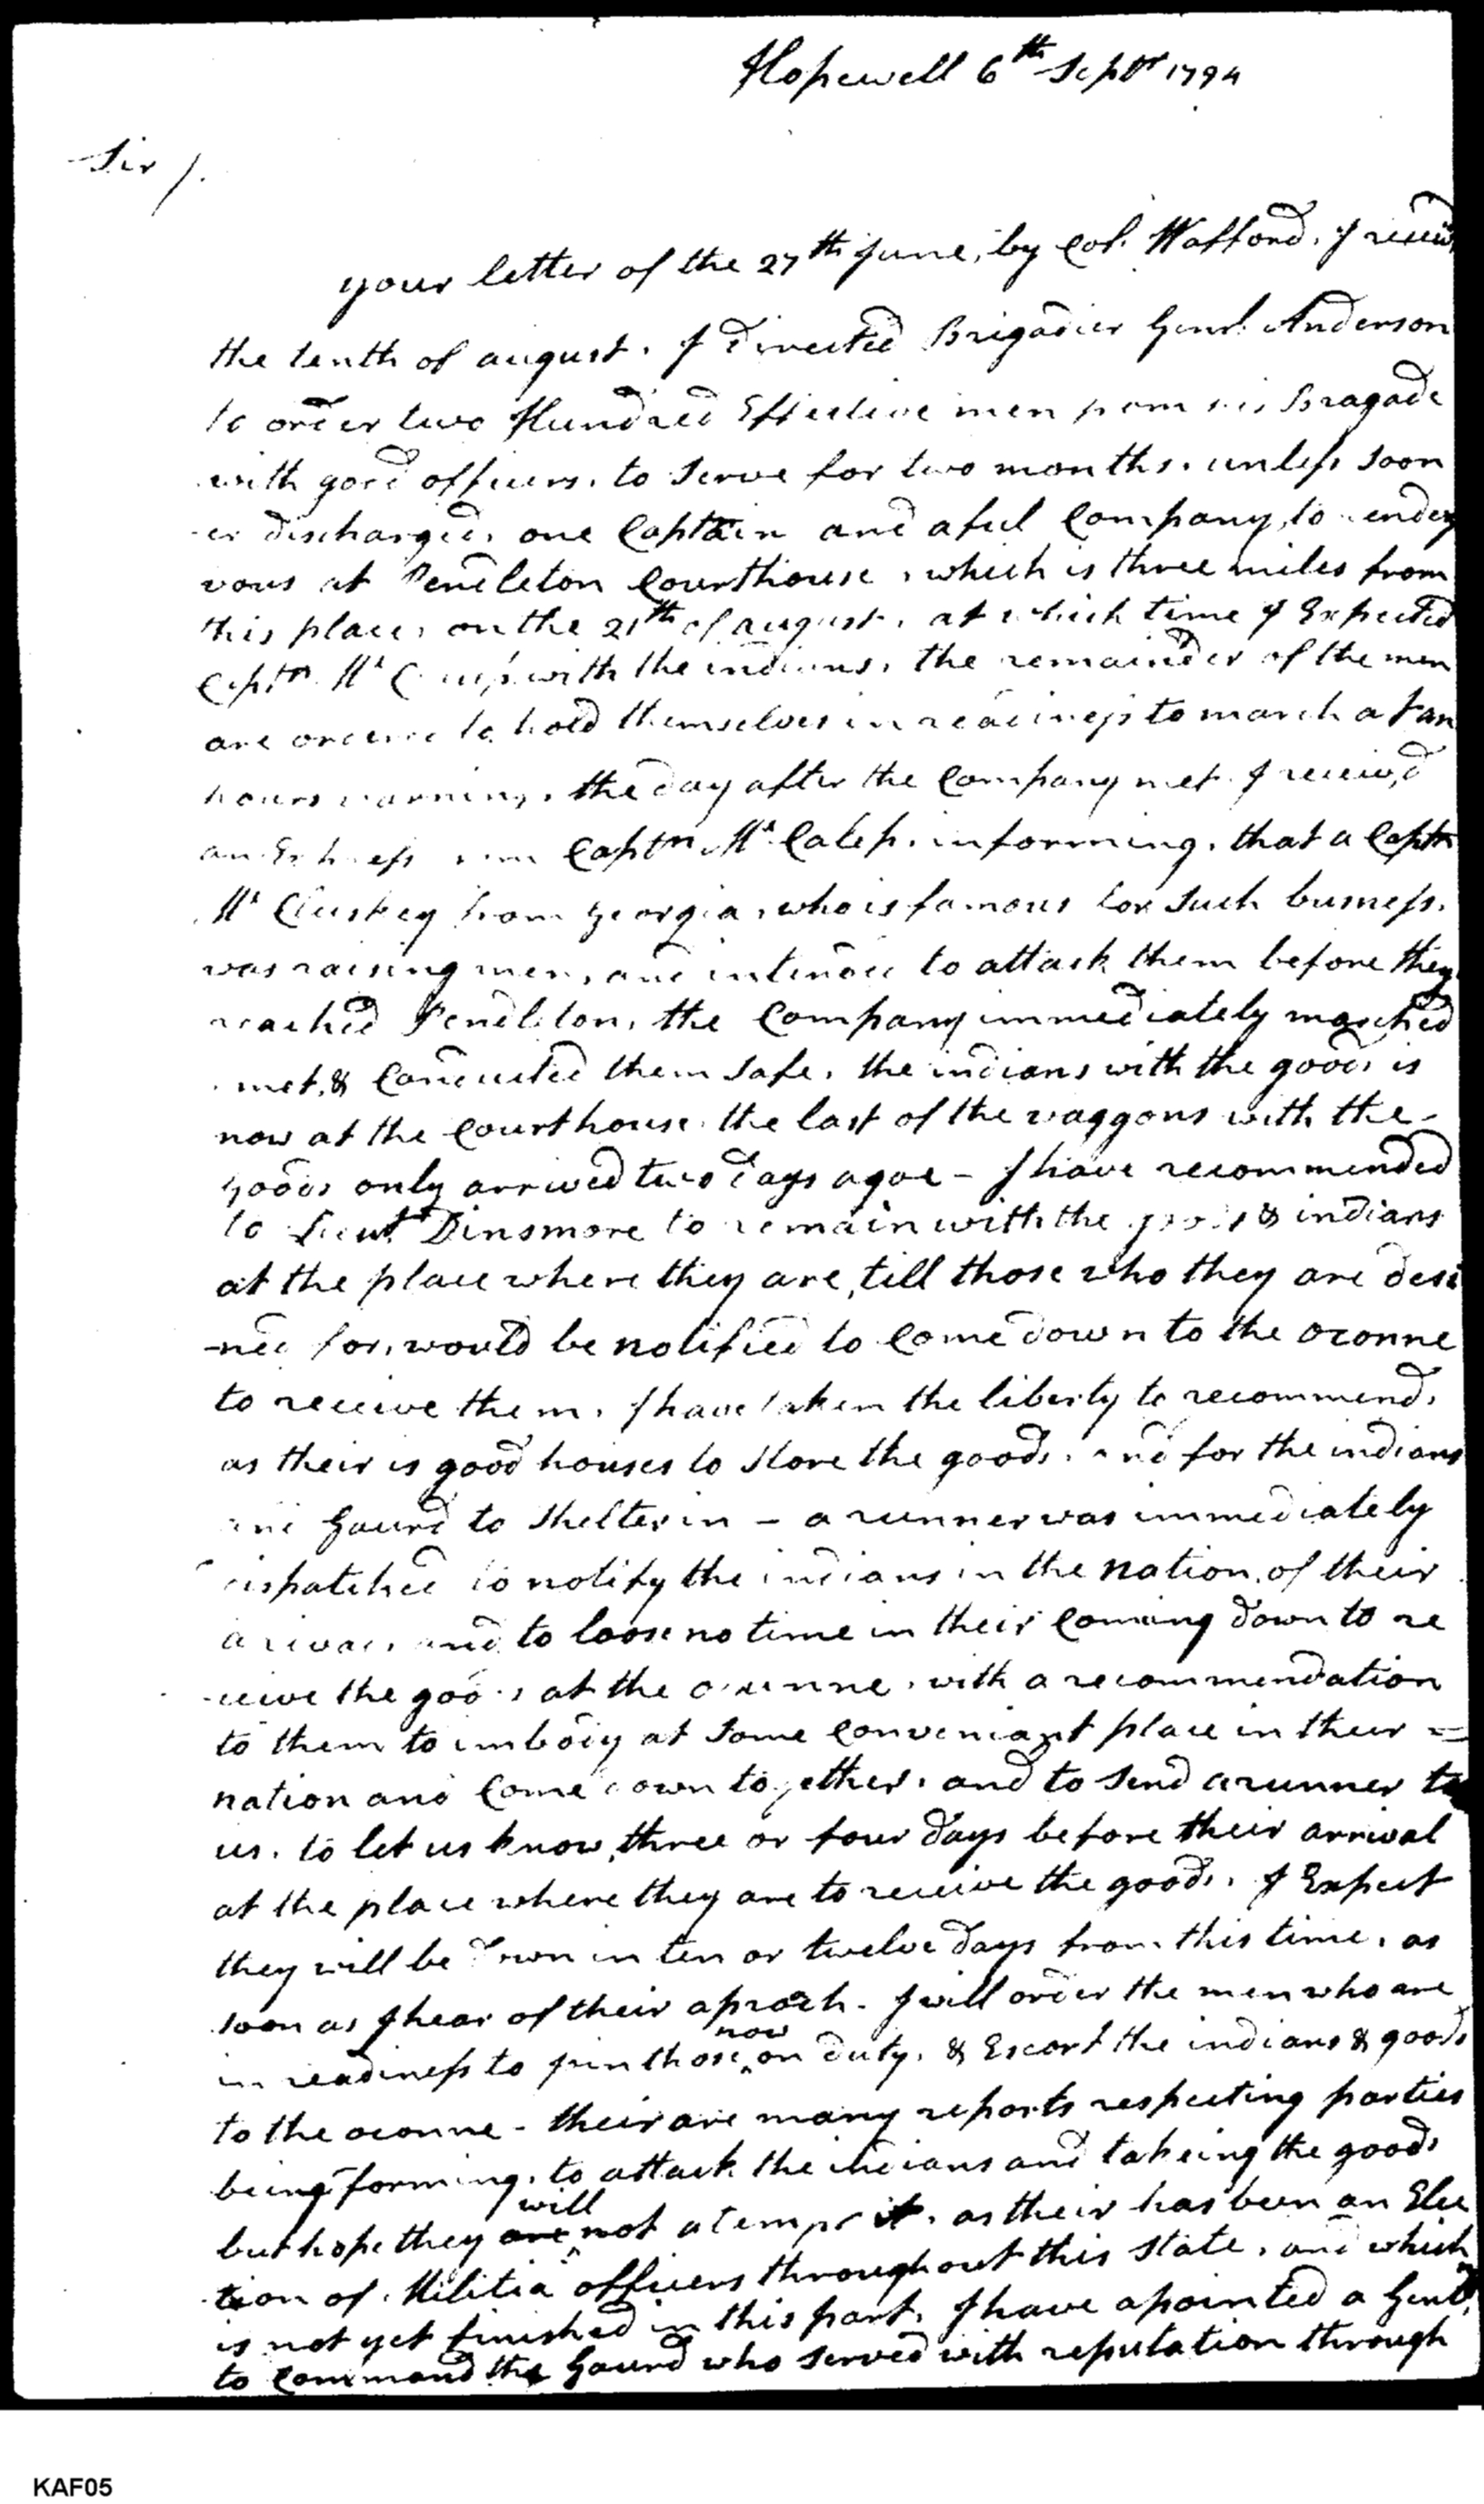 Hopewell 6th Septr 1794
Sir /.
your letter of the 27th June, by Col. Wafford, I receivd
the tenth of august. I directed Brigadier Genrl. Anderson
to order two Hundred Effective men from his Bragade
with good officers, to Serve for two months, unless soon
-er discharged, one Captain and a ful Company, to rendez
vous at Pendleton Courthouse, which is three miles from
this place, on the 21th of august, at which time I Expected
Captn. Mc with the indians, the remainder of the men
are ordered to hold themselves in readiness to march at an
hours warning, the day after the Company met I receiv,d
an Express from Captn. Mc Calep, informing, that a Captn
Mc Cluskey from Georgia, who is famous for Such business,
was raising men, and intended to attack them before they
reached Pendleton, the Company immediately marched
met, & Conducted them Safe, the indians with the goods is
now at the Courthouse, the last of the waggons with the
goods only arrived two days agoe - I have recommended
to Lieut. Dinsmore to remain with the goods & indians
at the place where they are, till those who they are desi
-ned for, would be notified to Come down to the oconne
to receive them, I have taken the liberty to recommend,
as their is good houses to Store the goods, and for the indians
and Gaurd to Shelter in - a runner was immediately
dispatched to notify the indians in the nation, of their
arival, and to loose no time in their Coming down to re
-ceive the goods at the oconne, with a recommendation
to them to imbody at Some Conveniant place in their =
nation and Come down together, and to Send a runner to
us, to let us know, three or four days before their arrival
at the place where they are to receive the goods, I Expect
they will be down in ten or twelve days from this time, as
soon as I hear of their aproach - I will order the men who are
in readiness to join those now on duty, & Escort the indians & goods
to the oconne - their are many reports respecting parties
being forming, to attack the indians and takeing the goods
but hope they are will not atempt it, as their has been an Elec
tion of Militia officers throughout this State, and which
is not yet finished in this part, I have apointed a Gentn.
to Command the Gaurd who served with reputation through
KAF05